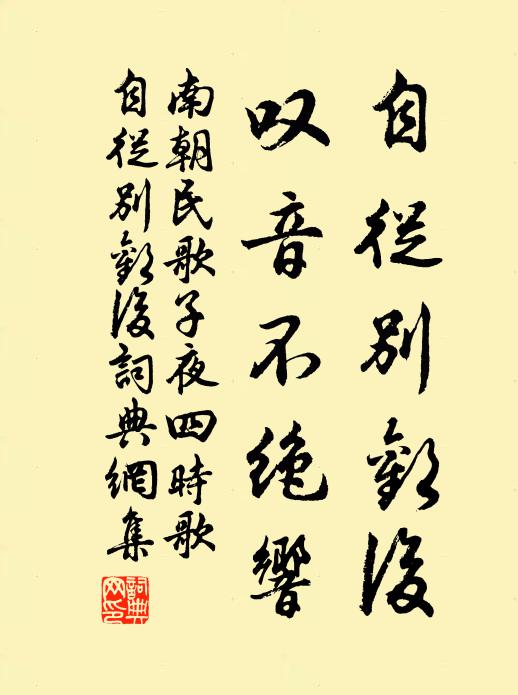 自從別歡後
叹音不絕響
南朝民歌子夜四時歌
自從別歡後詞典網集
詞典网印